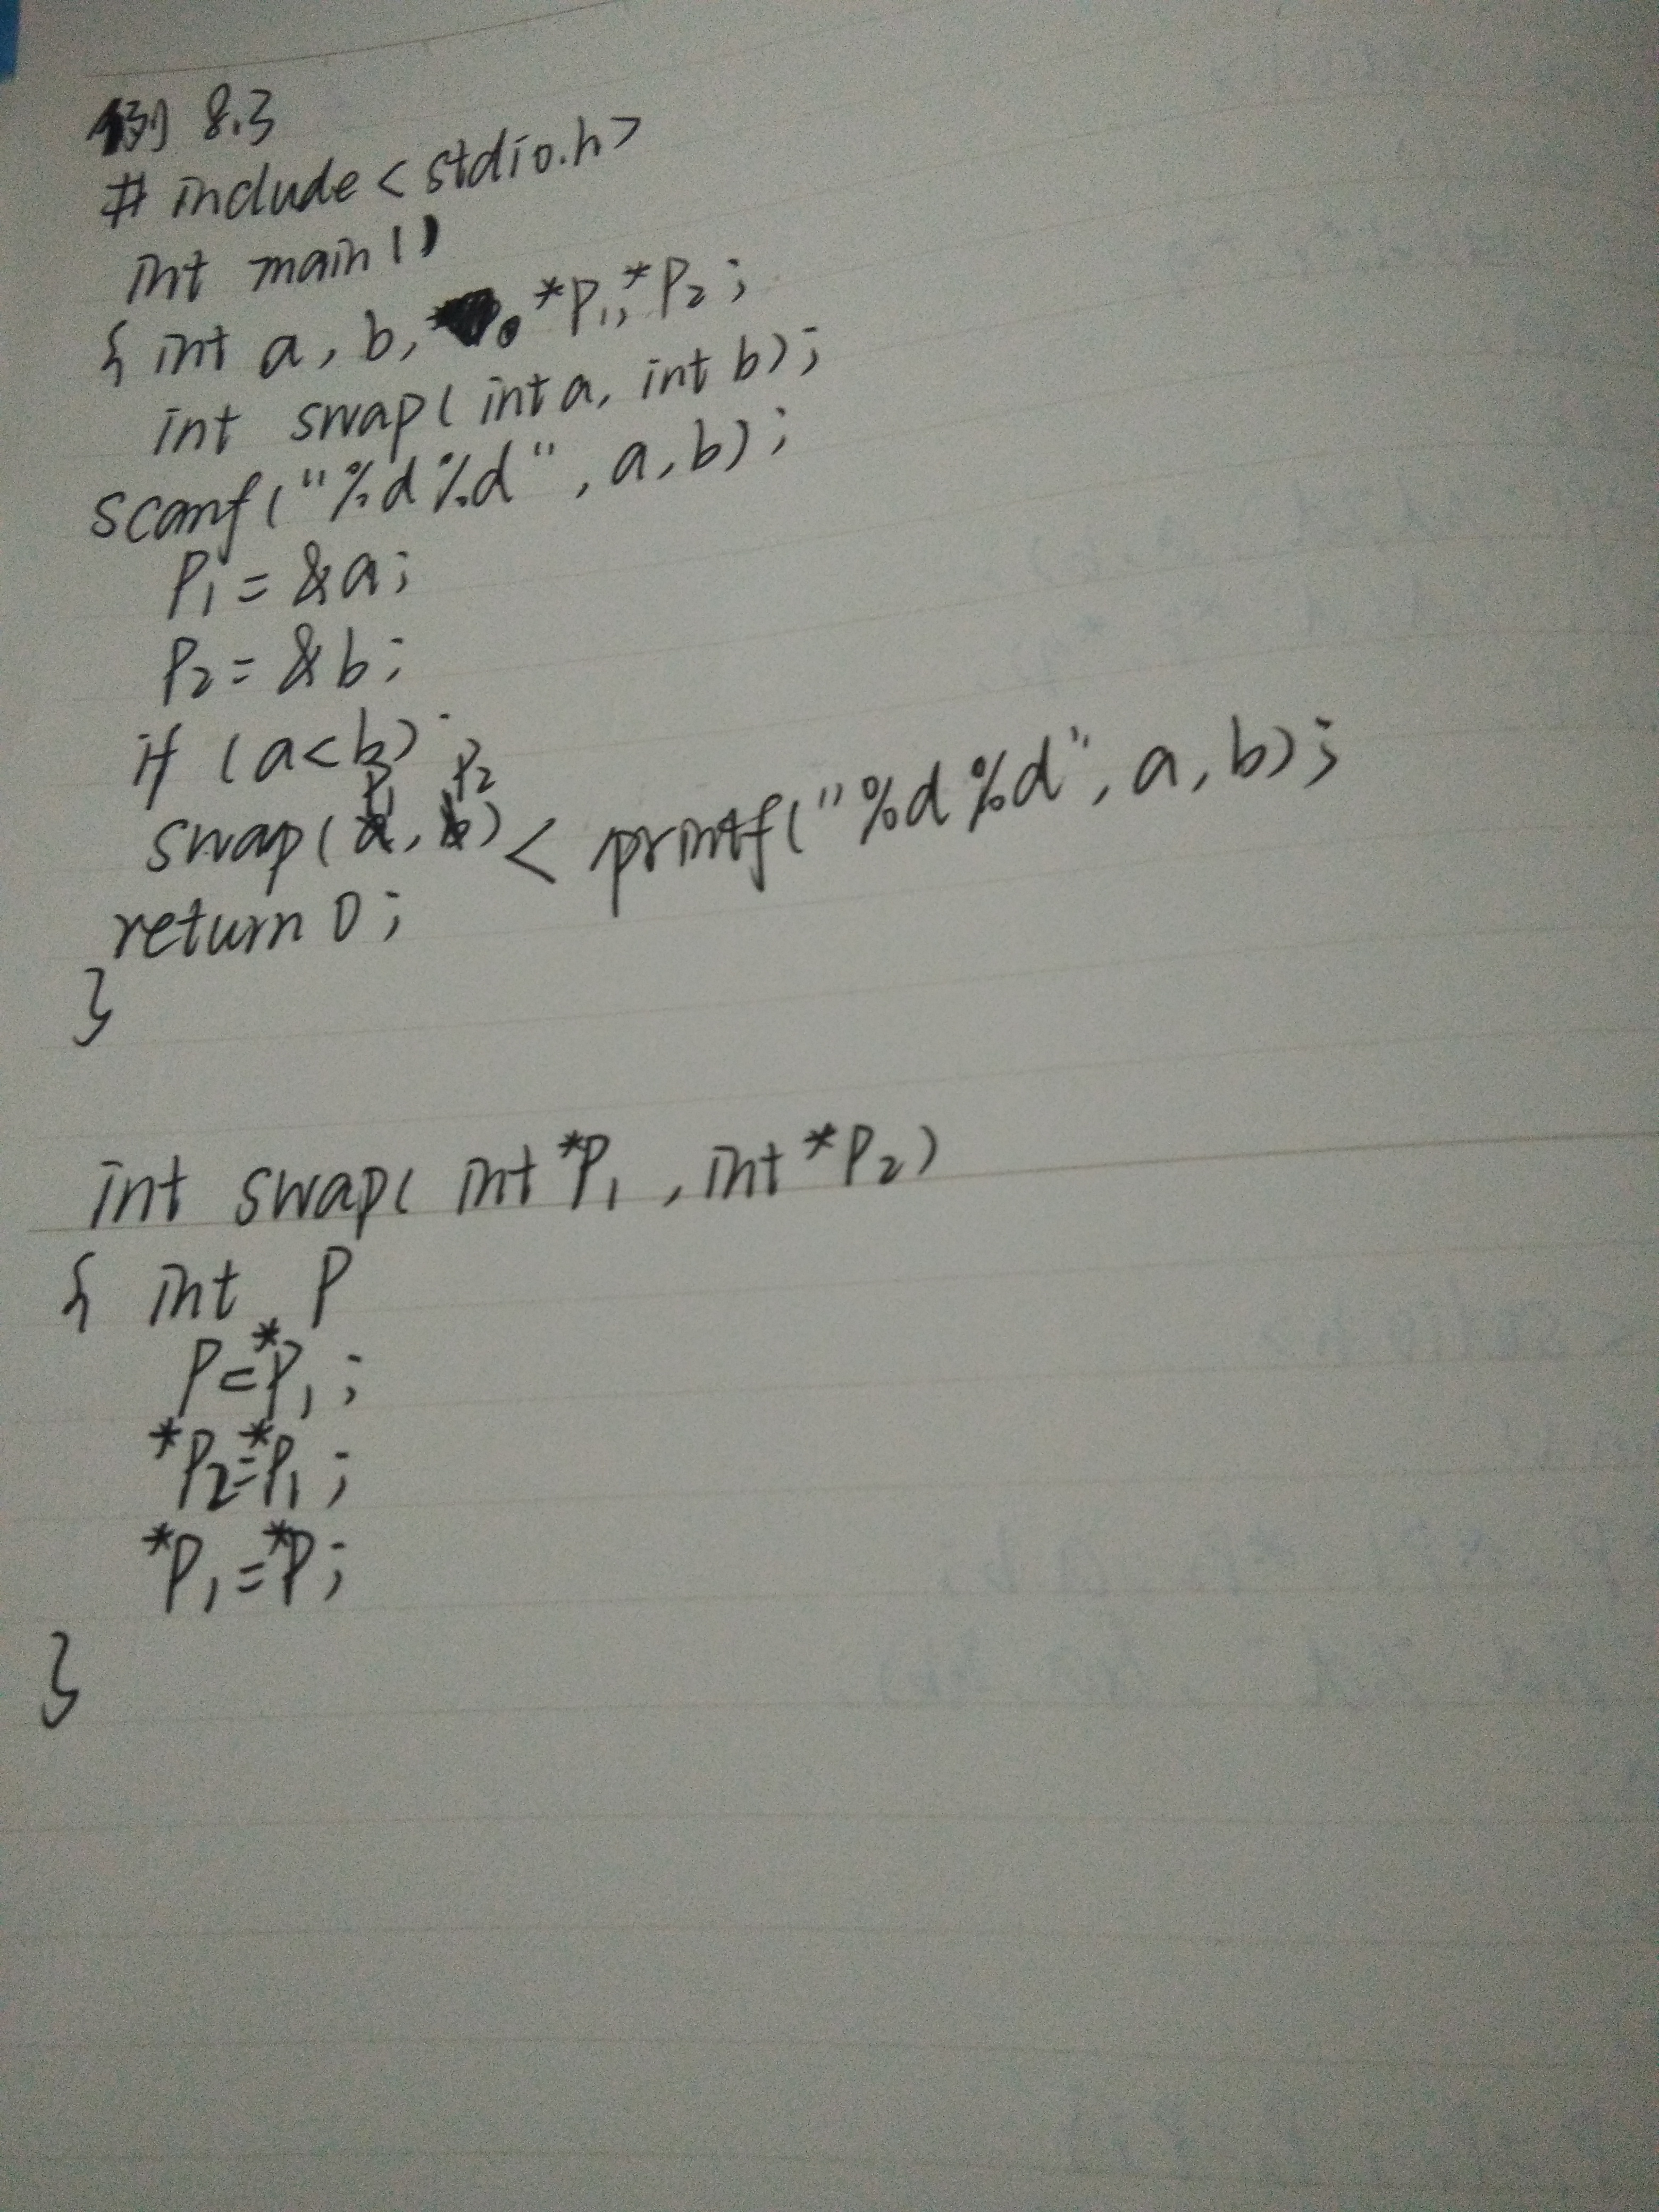 例 8.3
# include < stdio.h>
int main()
{ int a, b, *P1, *P2;
int swap( int a, int b);
scanf("%d%d", a, b);
P1 = &a;
P2 = &b;
if (a<b)
swap( P1, P2) < printf("%d %d", a, b);
return 0;
}
int swap( int *P1 , int *P2)
{ int P
P=*P1;
*P2=*P1;
*P1=*P;
}